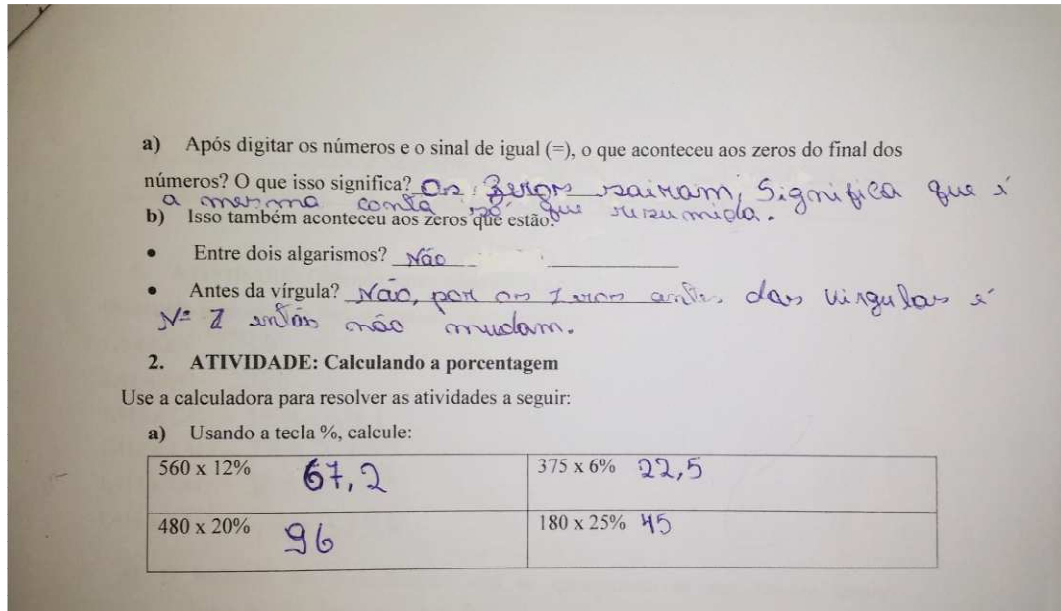 a) Após digitar os números e o sinal de igual (=), o que aconteceu aos zeros do final dos
números? O que isso significa? Os zeros sairam, Significa que é
a mesma conta só que resumida.
b) Isso também aconteceu aos zeros que estão:
• Entre dois algarismos? Não
• Antes da vírgula? Não, por os zeros antes das virgulas é
Nº então não mudam.
2. ATIVIDADE: Calculando a porcentagem
Use a calculadora para resolver as atividades a seguir:
a) Usando a tecla %, calcule:
560 x 12% 67,2 375 x 6% 22,5
480 x 20% 96 180 x 25% 45